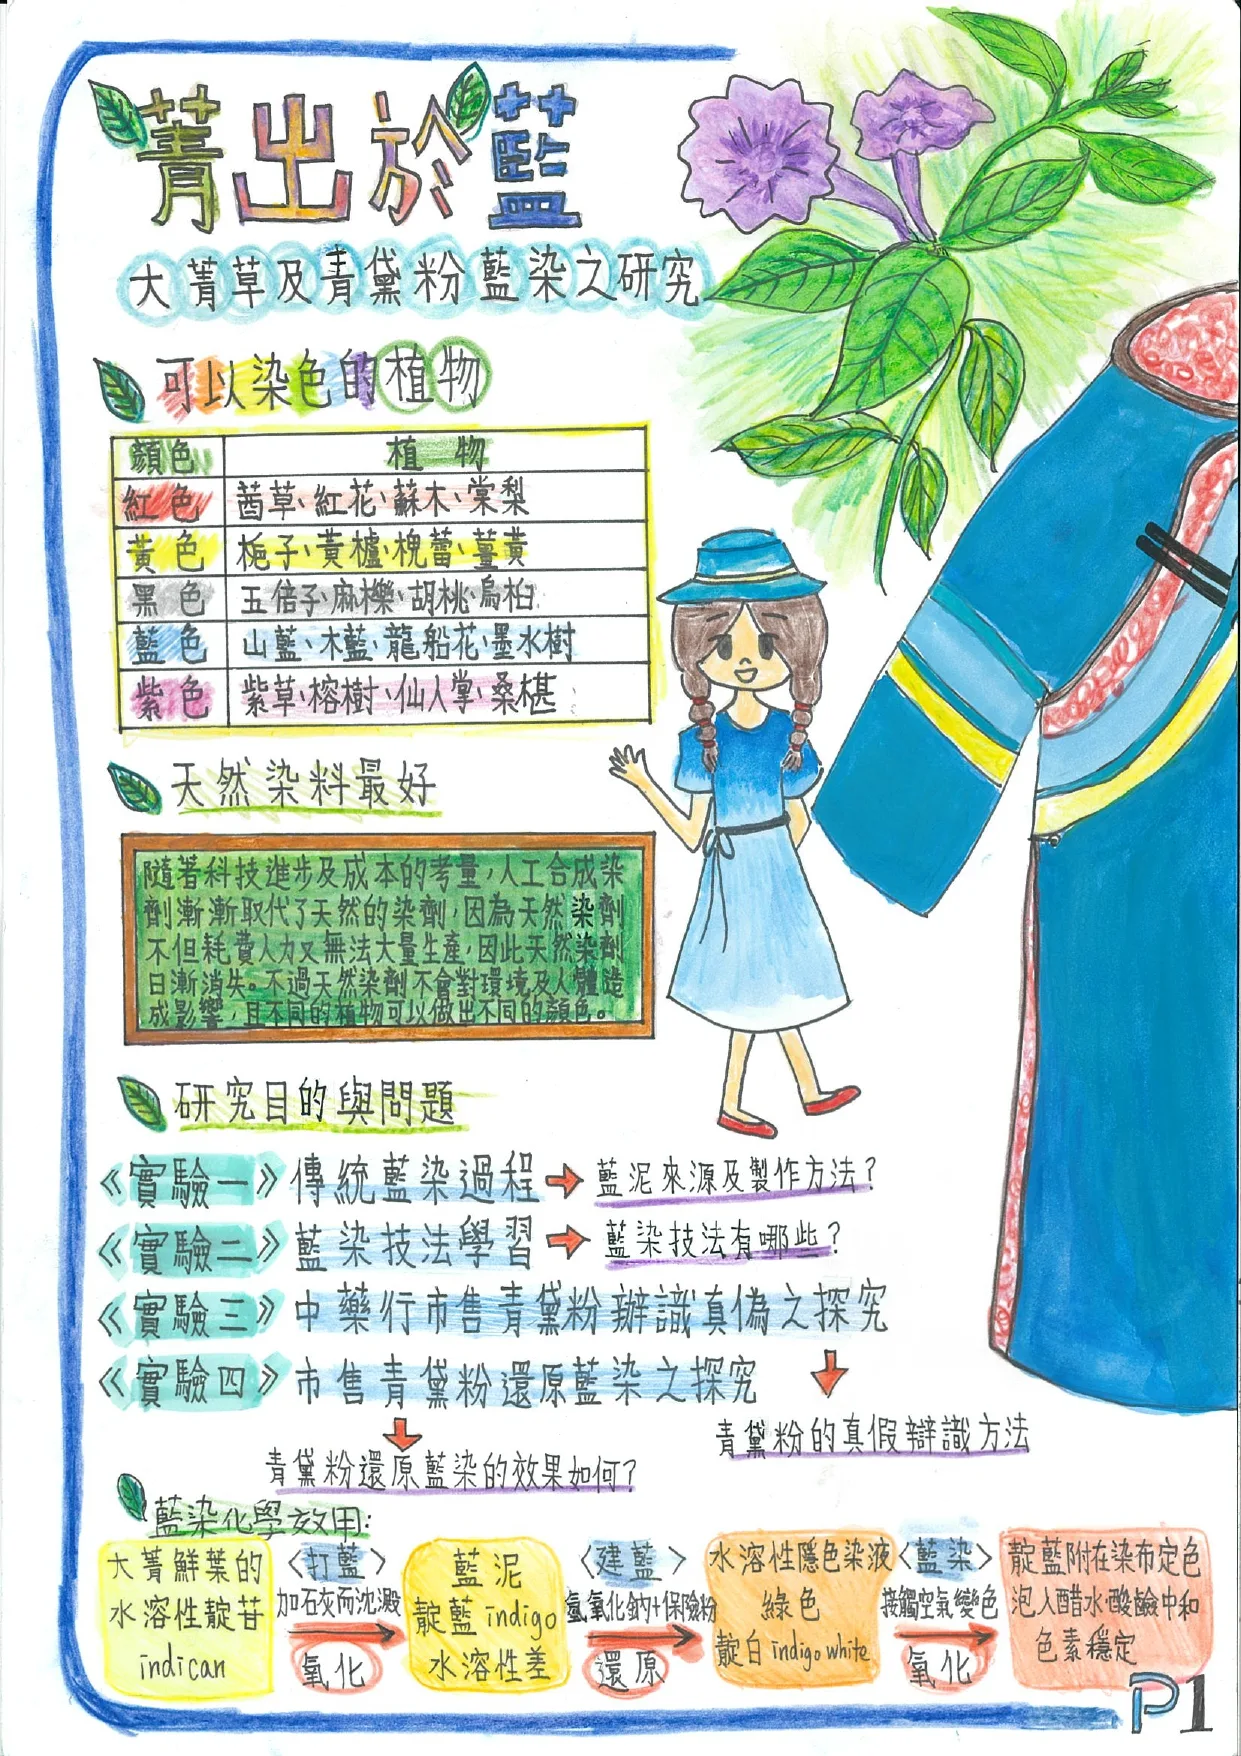 菁出於藍
大菁草及青黛粉藍染之研究
可以染色的植物
顏色 植物
紅色 茜草、紅花、蘇木、棠梨
黃色 梔子、黃櫨、槐蕾、薑黃
黑色 五倍子、麻櫟、胡桃、烏桕
藍色 山藍、木藍、龍船花、墨水樹
紫色 紫草、榕樹、仙人掌、桑椹
天然染料最好
隨著科技進步及成本的考量，人工合成染
劑漸漸取代了天然的染劑，因為天然染劑
不但耗費人力又無法大量生產，因此天然染劑
日漸消失。不過天然染劑不會對環境及人體造
成影響，且不同的植物可以做出不同的顏色。
研究目的與問題
《實驗一》傳統藍染過程→藍泥來源及製作方法？
《實驗二》藍染技法學習→藍染技法有哪些？
《實驗三》中藥行市售青黛粉辦識真偽之探究
《實驗四》市售青黛粉還原藍染之探究
青黛粉的真假辯識方法
青黛粉還原藍染的效果如何？
藍染化學效用：
大菁鮮葉的
水溶性靛苷
indican
〈打藍〉
加石灰而沈澱
氧化
藍泥
靛藍 indigo
水溶性差
〈建藍〉
氫氧化鈉+保險粉
還原
水溶性隱色染液
綠色
靛白 indigo white
〈藍染〉
接觸空氣變色
氧化
靛藍附在染布定色
泡入醋水，酸鹼中和
色素穩定
P1